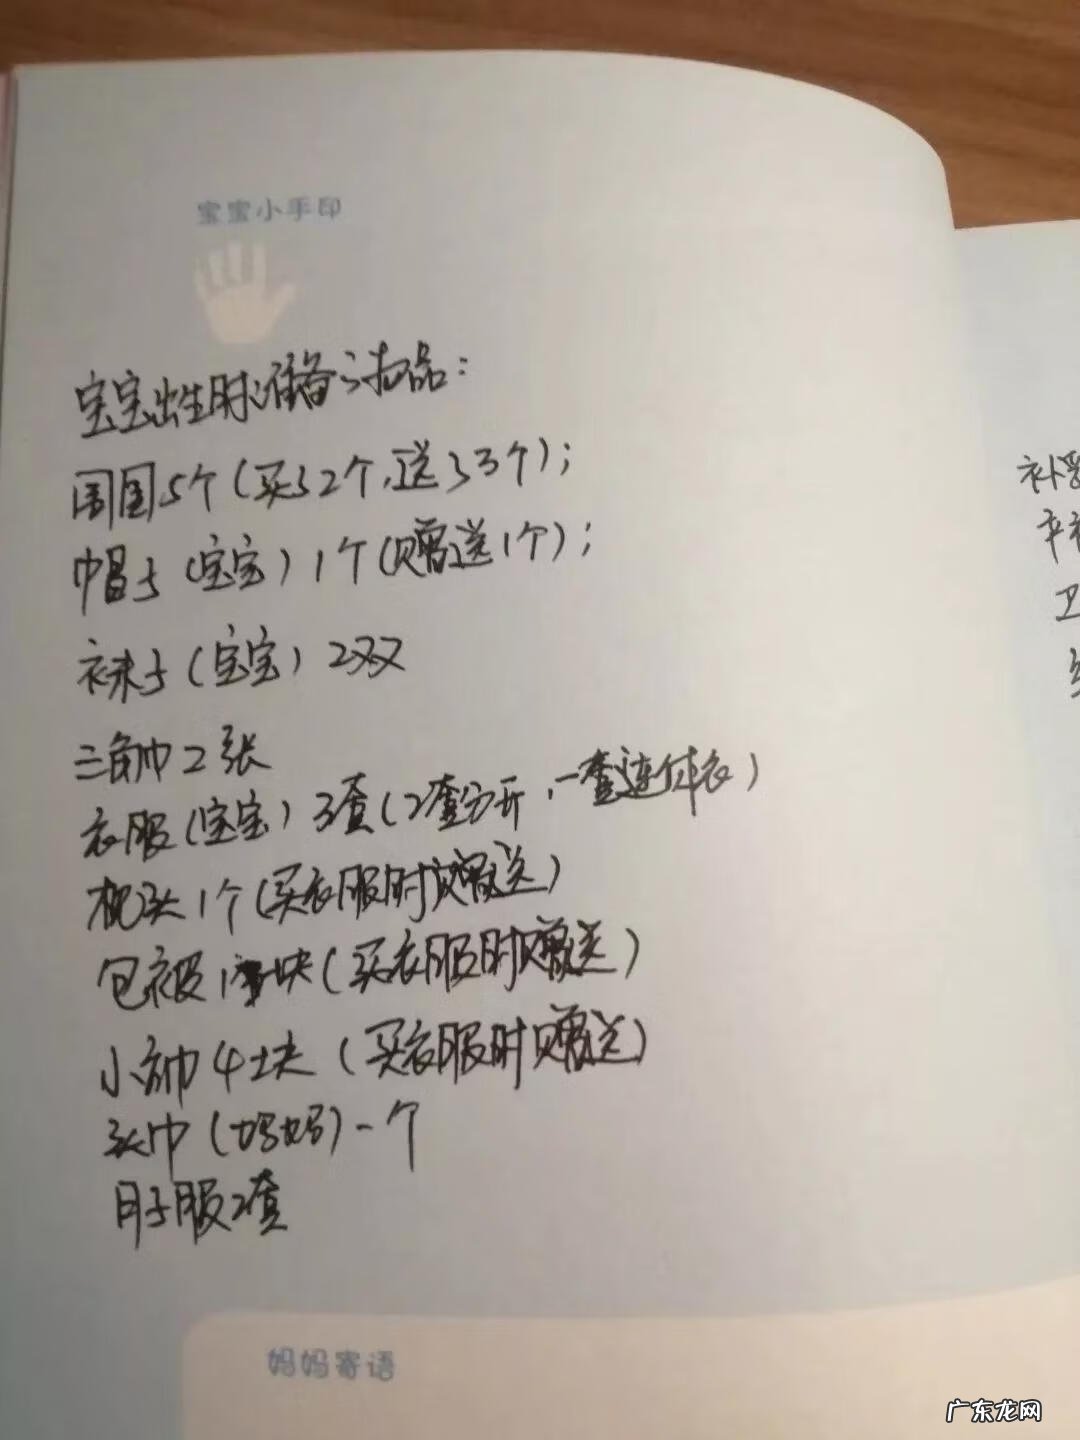 宝宝小手印
宝宝出生时准备之物品：
围围5个（买了2个，送了3个）；
帽子（宝宝）1个（赠送1个）；
袜子（宝宝）2双
三角巾2张
衣服（宝宝）3套（2套分开，一套连体衣）
枕头1个（买衣服时赠送）
包被1块（买衣服时赠送）
小方巾4块（买衣服时赠送）
头巾（妈妈）一个
月子服2套
妈妈寄语
补
平
卫
广东龙网